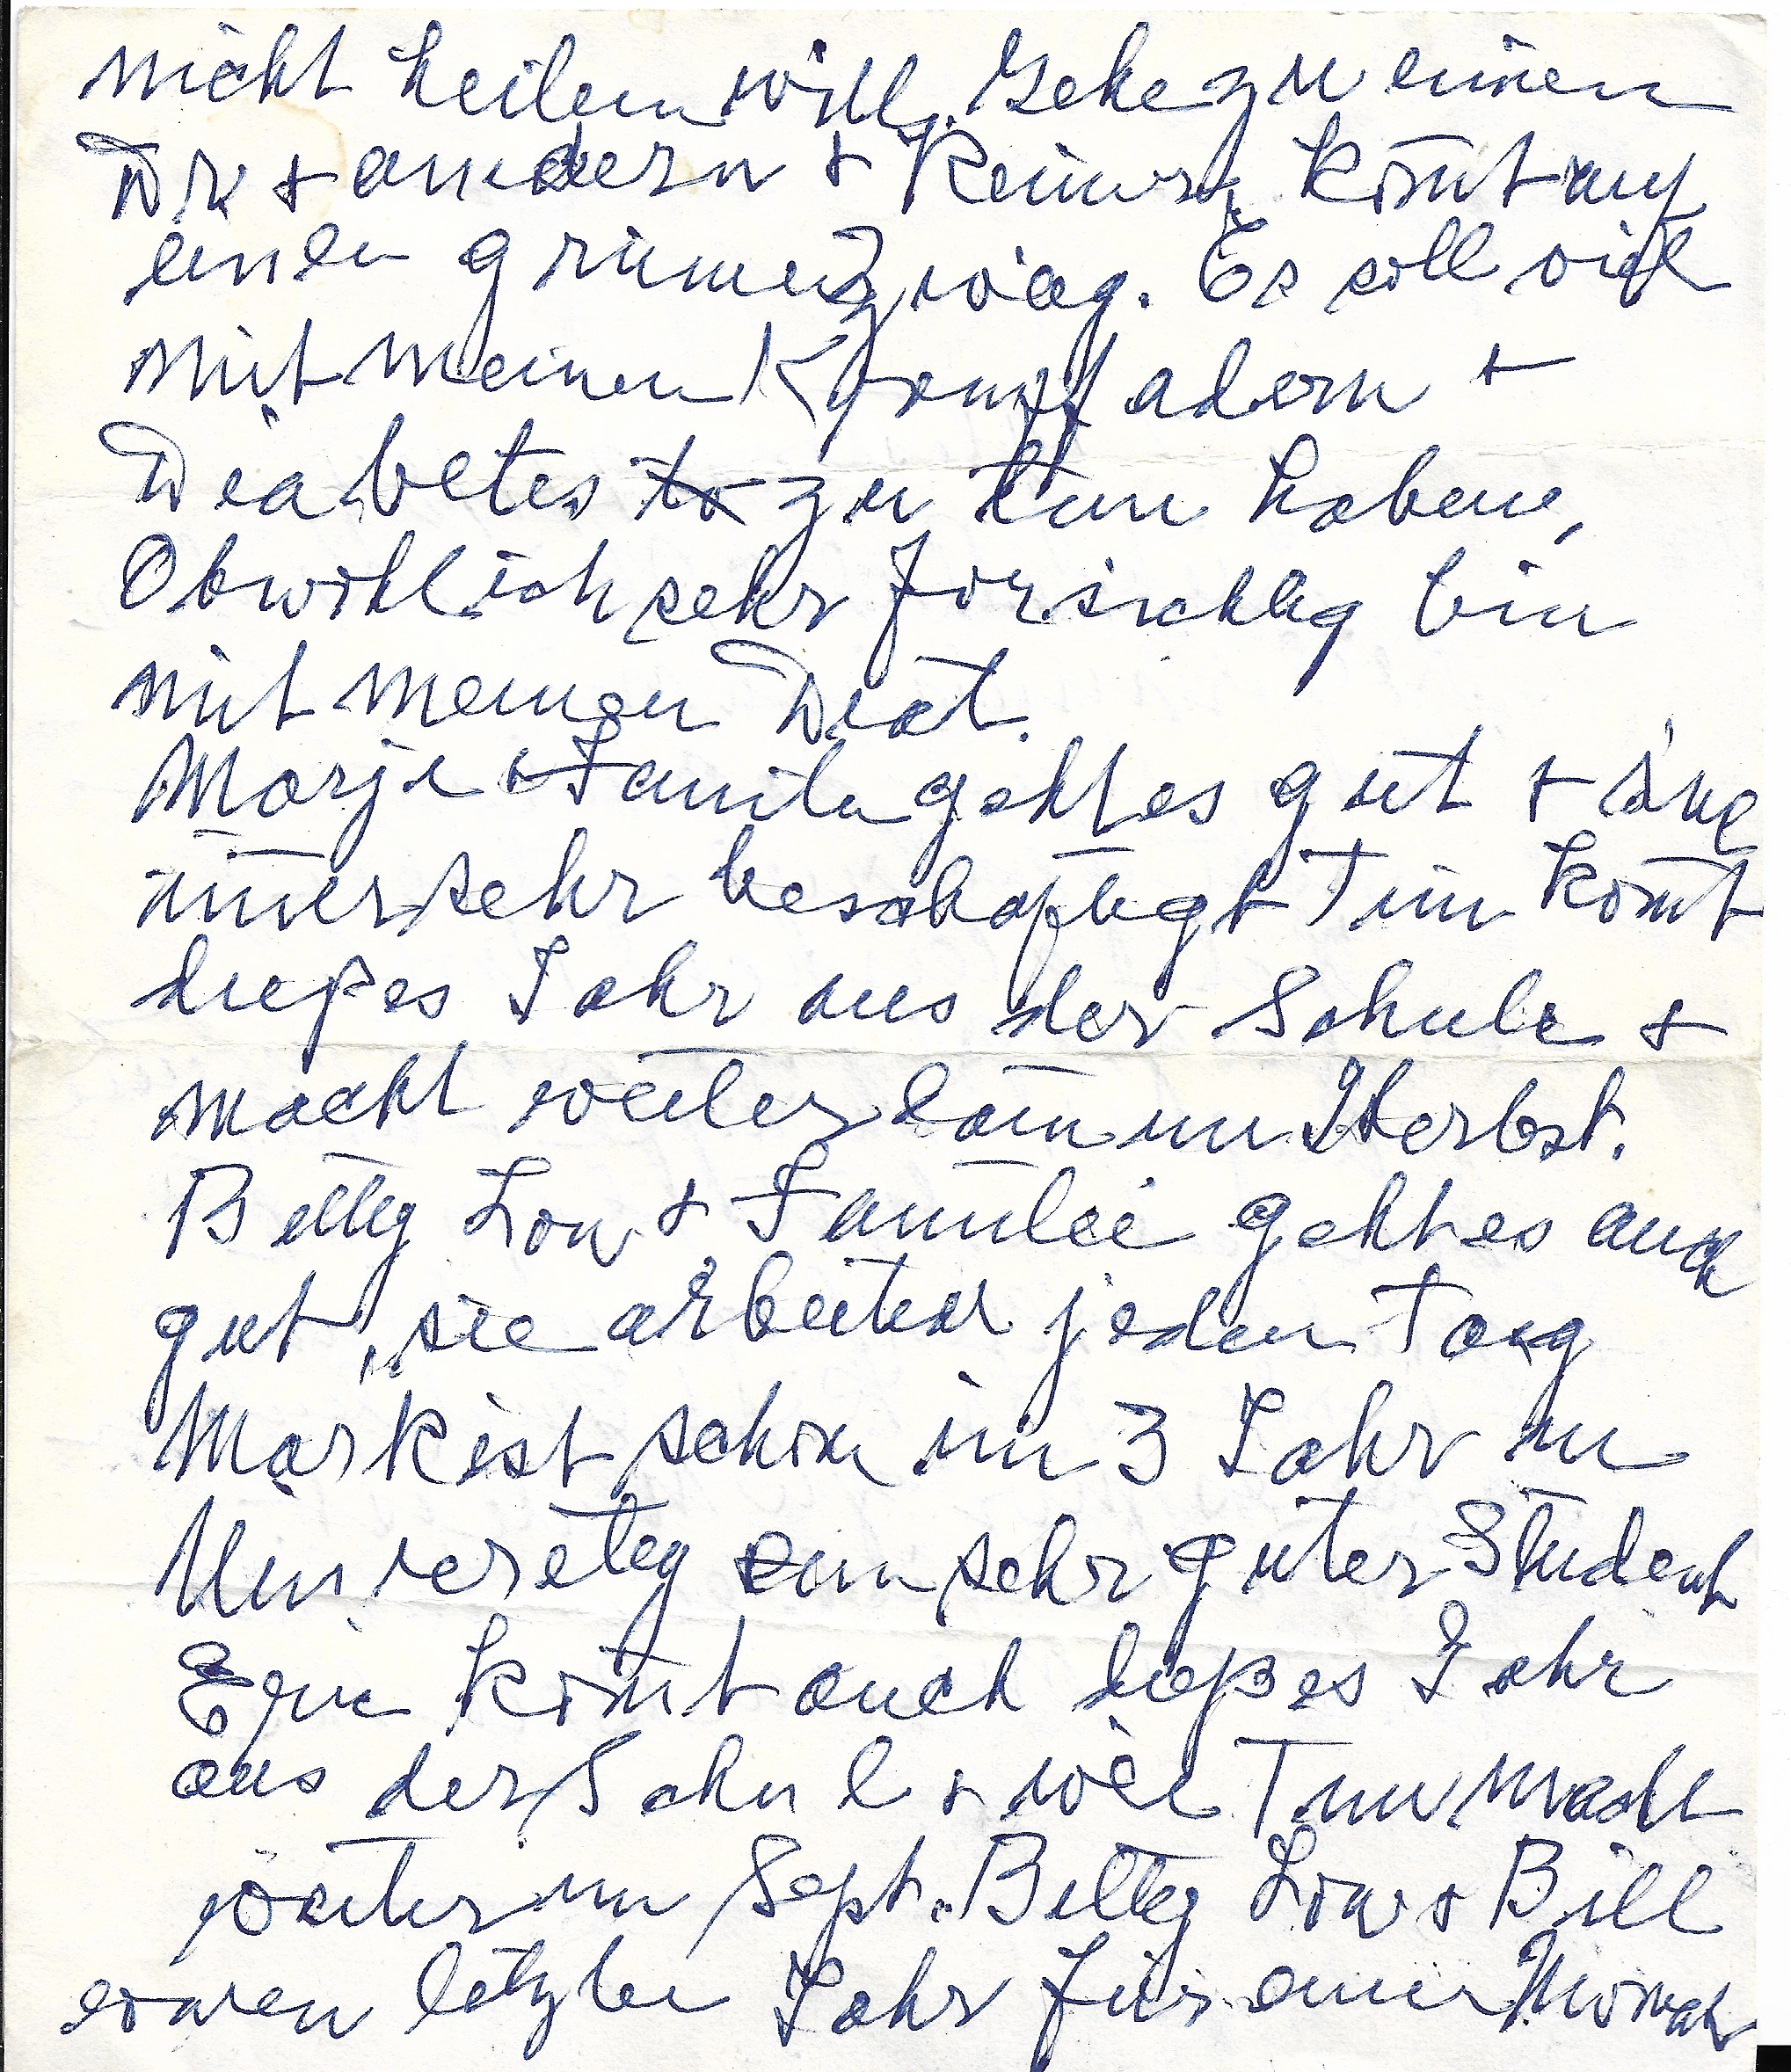 nicht heilen will. Gehe zu einen
Dr + andern + Keiner kom̄t auf
einen grünen Zweig. Es soll viel
mit meinen Krampfadern +
Diabetes to zu tun haben,
Obwohl ich sehr forsichtig bin
mit meiner Diät.
Marje + Familie geht es gut +
im̄er sehr beschäftigt Tim kom̄t
dießes Jahr aus der Schule +
macht weiter dan̄ im Herbst.
Betty Lou + Familie geht es auch
gut, sie arbeitet jeden Tag
Mark ist schon im 3 Jahr in
Universety ein sehr guter Student
Eric kom̄t auch dießes Jahr
aus der Schul + wie Tim macht
weiter im Sept. Betty Lou + Bill
waren letzte Jahr für einen Monat